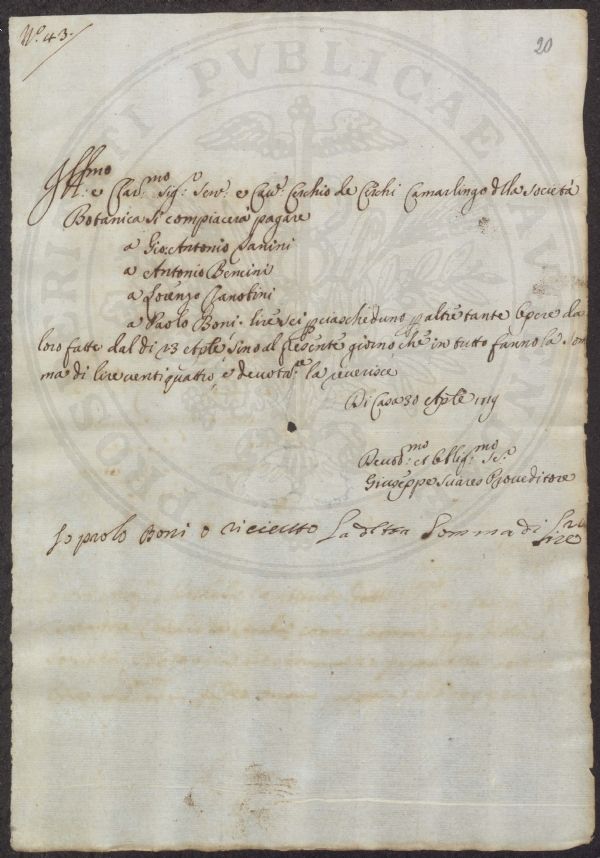 N.º 43.
20
Ill.mo e Clar.mo Sig.re Sen.re e Cav.re Cerchio de Cerchi Camarlingo dlla Società
Botanica si compiacerà pagare
a Gio: Antonio Nanini
a Antonio Bencini
a Lorenzo Zanobini
a Paolo Boni - lire sei p ciascheduno p altre tante Opere da
loro fatte dal di 23 Aple, sino al presente giorno che in tutto fanno la Som
ma di lire venti quattro e devotam.te la reverisce
Di Casa 30 Aple 1719
Devot.mo et Obblig.mo Se.re
Giuseppe Suares Proveditore
Io paolo Boni o riceuto La detta Somma di Lire
PROSPERITATI PVBLICAE